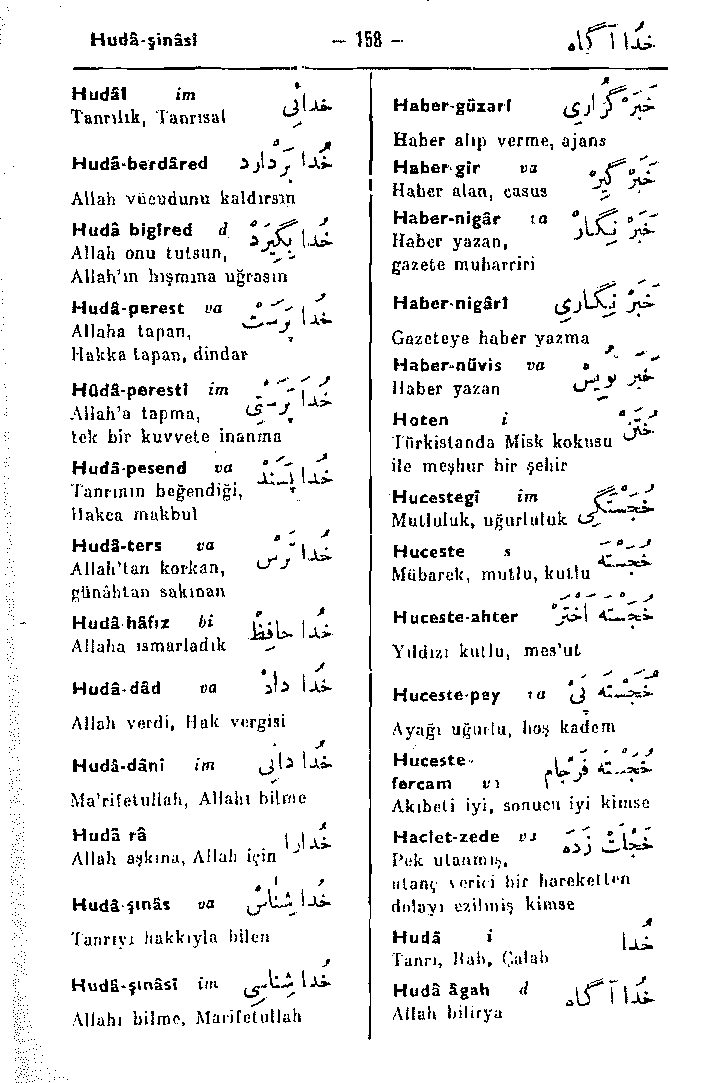 Hudâ-şinâsî — 158 — خُدا آگاه
Hudâî im خدائی
Tanrılık, Tanrısal
Hudâ-berdâred خُدا بَرْدارَدْ
Allah vücudunu kaldırsın
Hudâ bigîred d خُدا بِگیرَدْ
Allah onu tutsun,
Allah'ın hışmına uğrasın
Hudâ-perest va خُدا پَرَسْتْ
Allaha tapan,
Hakka tapan, dindar
Hûdâ-perestî im خُدا پَرَسْتی
Allah'a tapma,
tek bir kuvvete inanma
Hudâ-pesend va خُدا پَسَنْدْ
Tanrının beğendiği,
Hakca makbul
Hudâ-ters va خُدا تَرْسْ
Allah'tan korkan,
günâhtan sakınan
Hudâ hâfız bi خُدا حافِظْ
Allaha ısmarladık
Hudâ-dâd va خُدا دادْ
Allah verdi, Hak vergisi
Hudâ-dânî im خُدا دانی
Ma'rifetullah, Allahı bilme
Hudâ râ خُدارا
Allah aşkına, Allah için
Hudâ-şınâs va خُدا شِناسْ
Tanrıyı hakkıyla bilen
Hudâ-şınâsî im خُدا شِناسی
Allahı bilme, Marifetullah
Haber-güzarî خَبَرْ گُزاری
Haber alıp verme, ajans
Haber-gîr va خَبَرْ گیرْ
Haber alan, casus
Haber-nigâr ta خَبَرْ نِگارْ
Haber yazan,
gazete muharriri
Haber-nigârî خَبَرْ نِگاری
Gazeteye haber yazma
Haber-nüvis va خَبَر نُویسْ
Haber yazan
Hoten i خُتَنْ
Türkistanda Misk kokusu
ile meşhur bir şehir
Hucestegî im خُجَسْتَگی
Mutluluk, uğurluluk
Huceste s خُجَسْتَه
Mübarek, mutlu, kutlu
Huceste-ahter خُجَسْتَه اَخْتَرْ
Yıldızı kutlu, mes'ut
Huceste-pey ta خُجَسْتَه پَی
Ayağı uğurlu, hoş kadem
Huceste- خُجَسْتَه فَرْجام
fercam
Akıbeti iyi, sonucu iyi kimse
Haclet-zede خَجْلَتْ زَدَه
Pek utanmış,
utanç verici bir hareketten
dolayı ezilmiş kimse
Hudâ i خُدا
Tanrı, Rab, Çalab
Hudâ âgah d خُدا آگاه
Allah bilirya